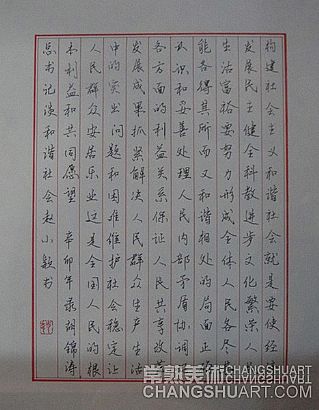 构建社会主义和谐社会就是要使经
发展民主健全科教进步文化繁荣人
生活富裕要努力形成全体人民各尽
能各得其所而又和谐相处的局面正
认识和妥善处理人民内部矛盾协调
各方面的利益关系保证人民共享改
发展成果抓紧解决人民群众生产生活
中的突出问题和困难维护社会稳定让
人民群众安居乐业这是全国人民的根
本利益和共同愿望 辛卯年录胡锦涛
总书记谈和谐社会赵小毅书
常熟美术馆CHANGSHUART
CHANGSHUART.COM